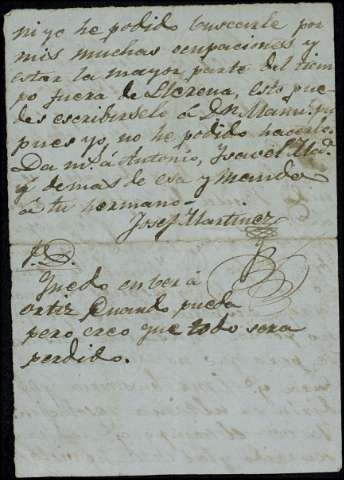 ni yo he podido buscarle por
mis muchas ocupaciones y
estar la mayor parte del tiem
po fuera de Llerena, esto pue
des escribirselo á Dn. Manuel
pues yo, no he podido hacerlo.
Da m.s á Antonio, Ysavel
y demas de esa y manda
á tu hermano
Josef Martinez
P.D.
Quedo en ber á
ortiz Cuando pueda
pero creo que todo sera
perdido.